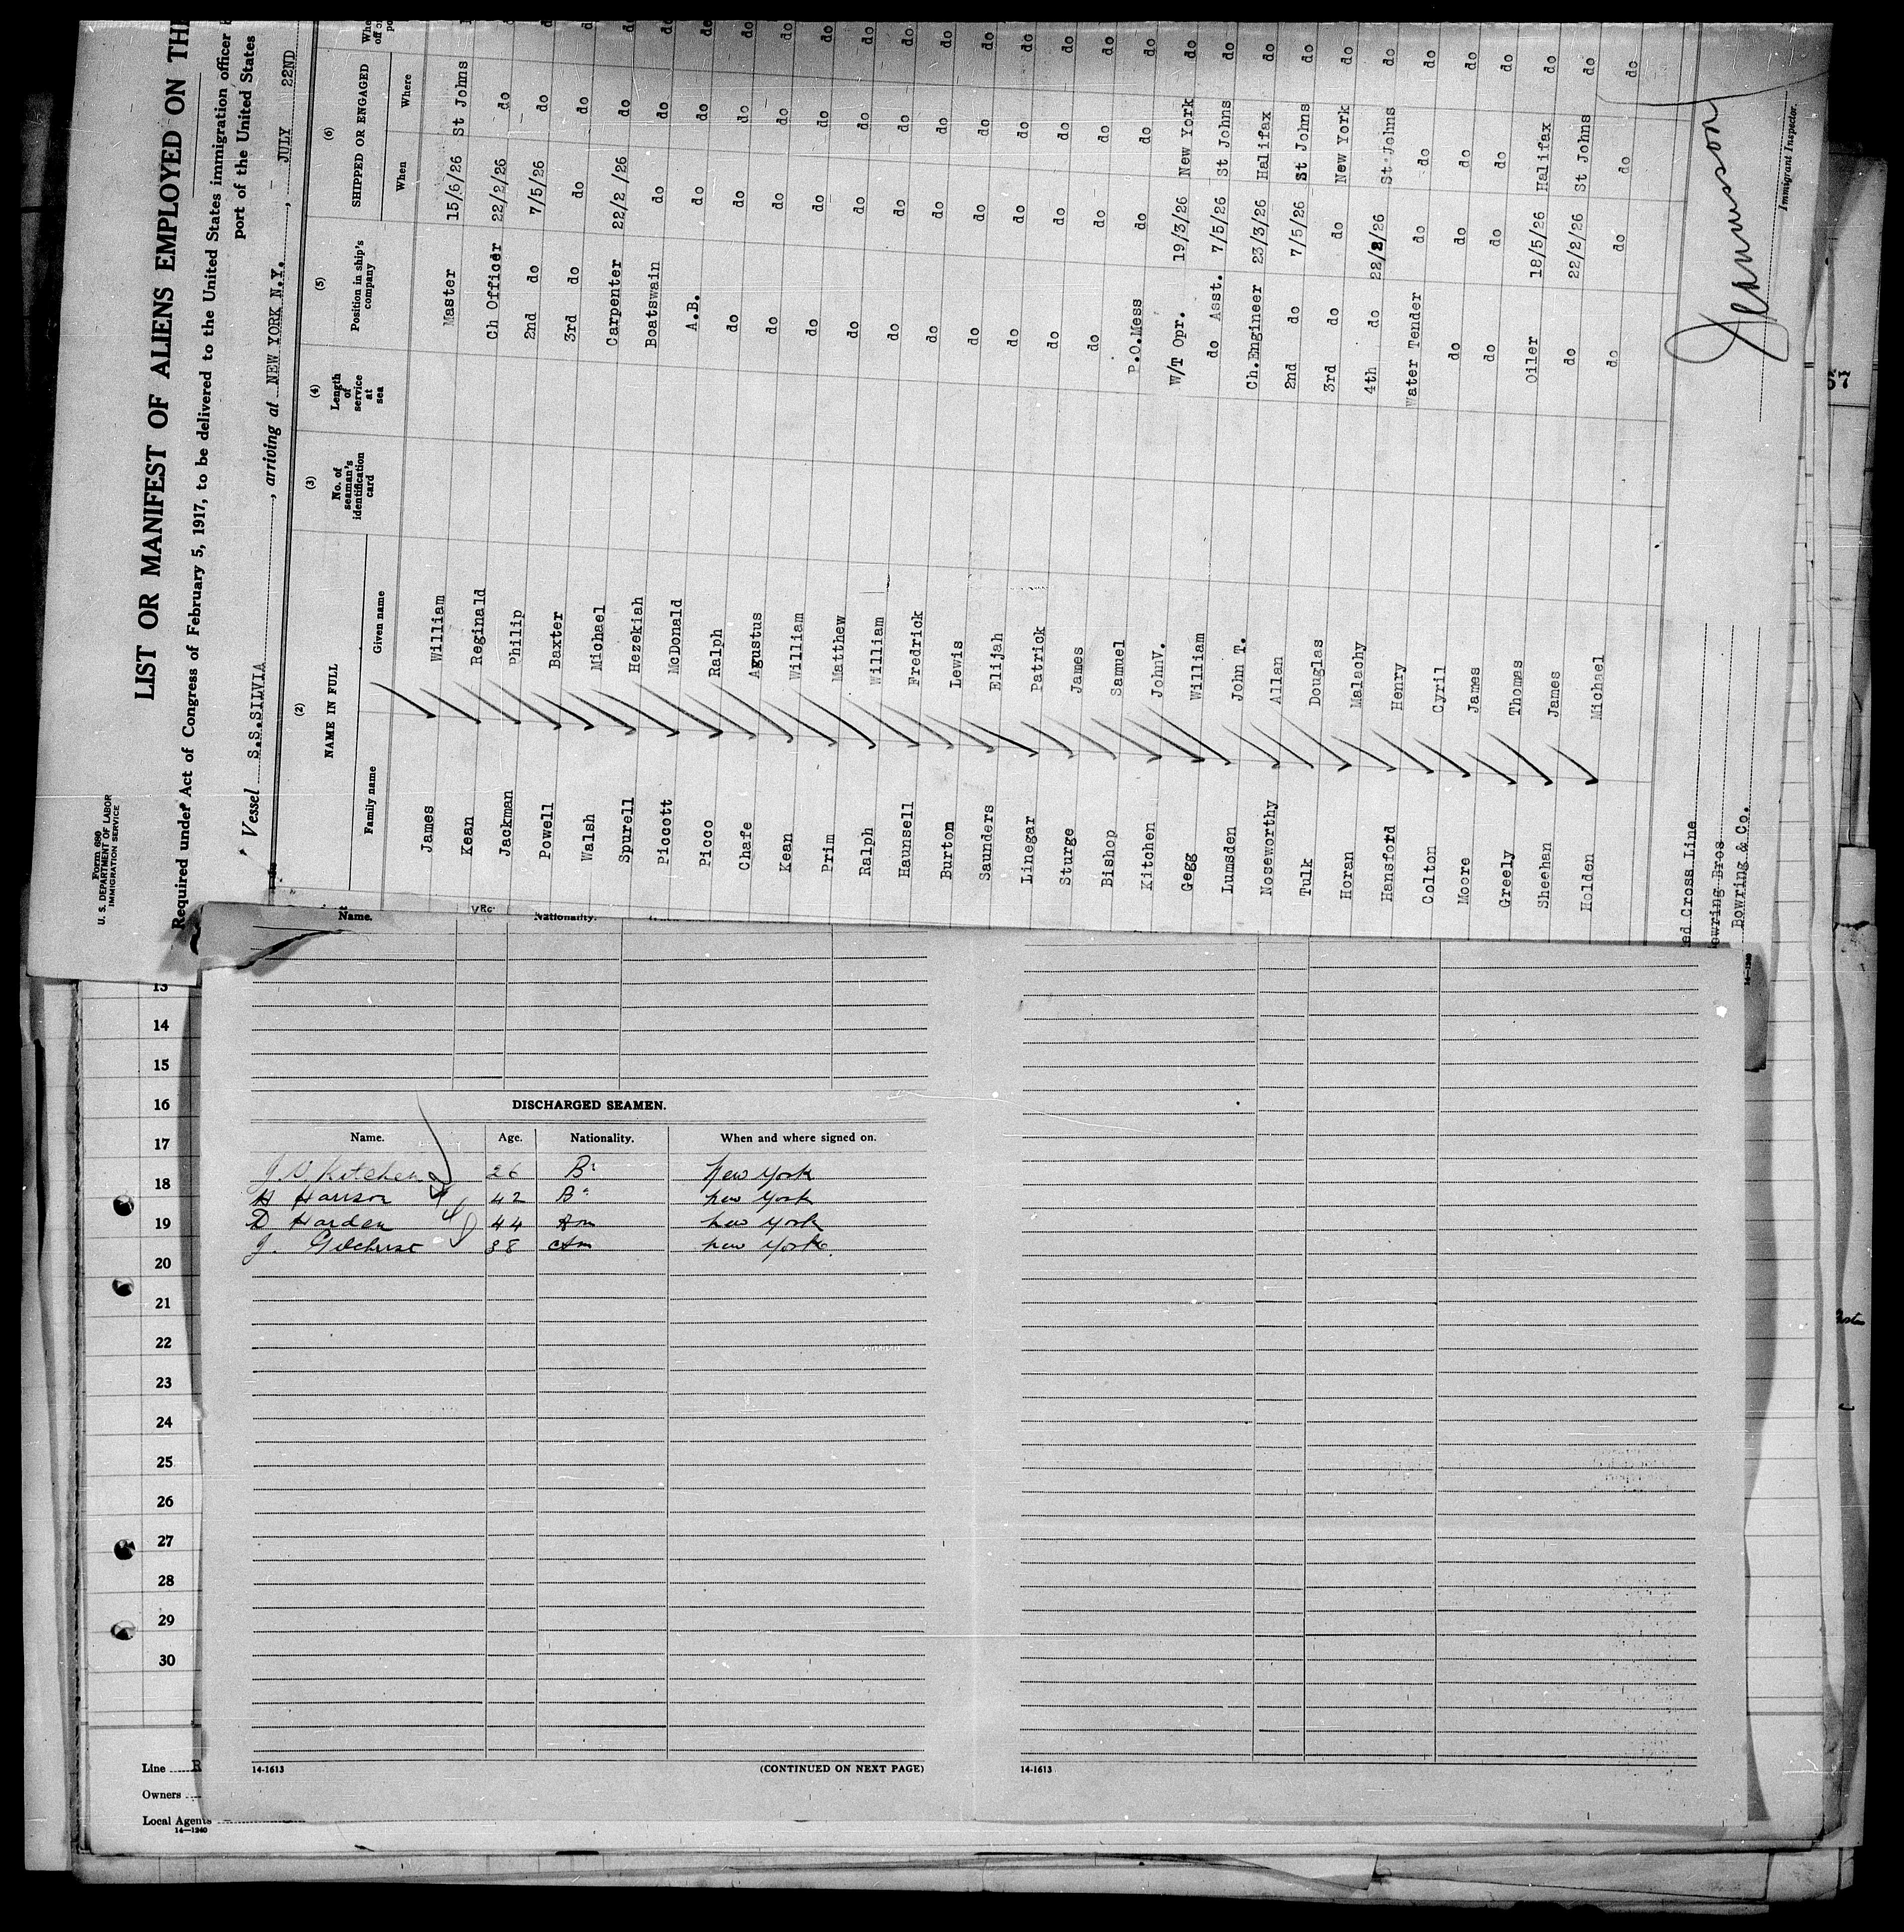 Form 680
U. S. DEPARTMENT OF LABOR
IMMIGRATION SERVICE
LIST OR MANIFEST OF ALIENS EMPLOYED ON THE
Required under Act of Congress of February 5, 1917, to be delivered to the United States immigration officer
port of the United States
Vessel S.S.SILVIA, arriving at NEW YORK N.Y., JULY 22ND
(2) (3) (4) (5) (6)
NAME IN FULL No. of seaman's identification card Length of service at sea Position in ship's company SHIPPED OR ENGAGED
Family name Given name When Where
James William Master 15/6/26 St Johns
Kean Reginald Ch Officer 22/2/26 do do
Jackman Philip 2nd do 7/5/26 do do
Powell Baxter 3rd do do do do
Walsh Michael Carpenter 22/2 /26 do do
Spurell Hezekiah Boatswain do do do
Piccott McDonald A.B. do do do
Picco Ralph do do do do
Chafe Agustus do do do do
Kean William do do do do
Prim Matthew do do do do
Ralph William do do do do
Haunsell Fredrick do do do do
Burton Lewis do do do do
Saunders Elijah do do do do
Linegar Patrick do do do do
Sturge James do do do do
Bishop Samuel P.O.Mess do do do
Kitchen JohnV. W/T Opr. 19/3/26 New York do
Gegg William do Asst. 7/5/26 St Johns do
Lumsden John T. Ch.Engineer 23/3/26 Halifax do
Noseworthy Allan 2nd do 7/5/26 St Johns do
Tulk Douglas 3rd do do New York do
Horan Malachy 4th do 22/2/26 St Johns do
Hansford Henry Water Tender do do do
Colton Cyril do do do do
Moore James do do do do
Greely Thomas Oiler 18/5/26 Halifax do
Sheehan James do 22/2/26 St Johns do
Holden Michael do do do do
ed Cross Line
owring Bros
Bowring & Co.
Immigrant Inspector.
14—1240
Name. Nationality.
13
14
15
16
17
18
19
20
21
22
23
24
25
26
27
28
29
30
DISCHARGED SEAMEN.
Name. Age. Nationality. When and where signed on.
J V Kitchen 26 Br New York
H Harrison 42 Br New York
D Harden 44 Am New York
J. Gilchrist 38 Am New York.
14-1613 (CONTINUED ON NEXT PAGE) 14-1613
Line R
Owners
Local Agents
14—1240